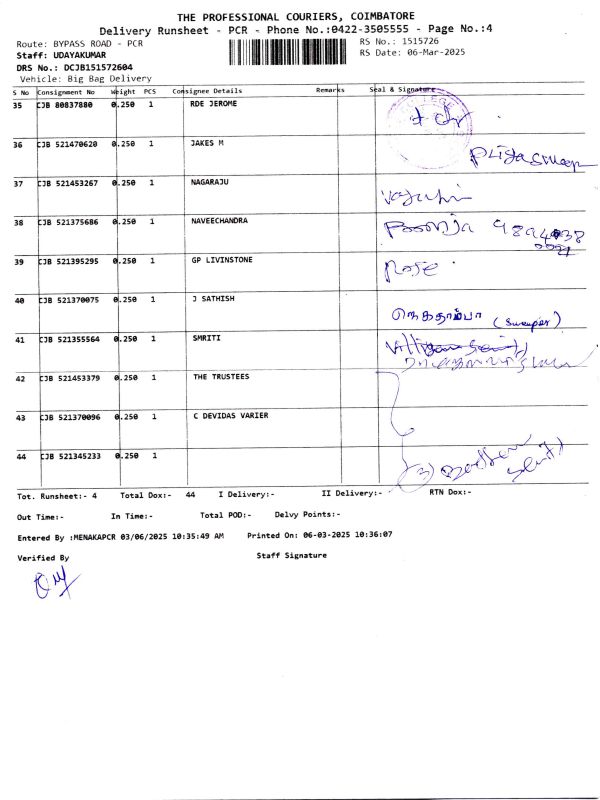 THE PROFESSIONAL COURIERS, COIMBATORE
Delivery Runsheet - PCR - Phone No.:0422-3505555 - Page No.:4
Route: BYPASS ROAD - PCR
RS No.: 1515726
Staff: UDAYAKUMAR
RS Date: 06-Mar-2025
DRS No.: DCJB151572604
Vehicle: Big Bag Delivery
S No Consignment No Weight PCS Consignee Details Remarks Seal & Signature
35 CJB 80837880 0.250 1 RDE JEROME
36 CJB 521470620 0.250 1 JAKES M
37 CJB 521453267 0.250 1 NAGARAJU
38 CJB 521375686 0.250 1 NAVEECHANDRA
39 CJB 521395295 0.250 1 GP LIVINSTONE
Rose
40 CJB 521370075 0.250 1 J SATHISH
(Sweeper)
41 CJB 521355564 0.250 1 SMRITI
42 CJB 521453379 0.250 1 THE TRUSTEES
43 CJB 521370096 0.250 1 C DEVIDAS VARIER
44 CJB 521345233 0.250 1
Tot. Runsheet:- 4 Total Dox:- 44 I Delivery:- II Delivery:- RTN Dox:-
Out Time:- In Time:- Total POD:- Delvy Points:-
Entered By :MENAKAPCR 03/06/2025 10:35:49 AM Printed On: 06-03-2025 10:36:07
Verified By Staff Signature